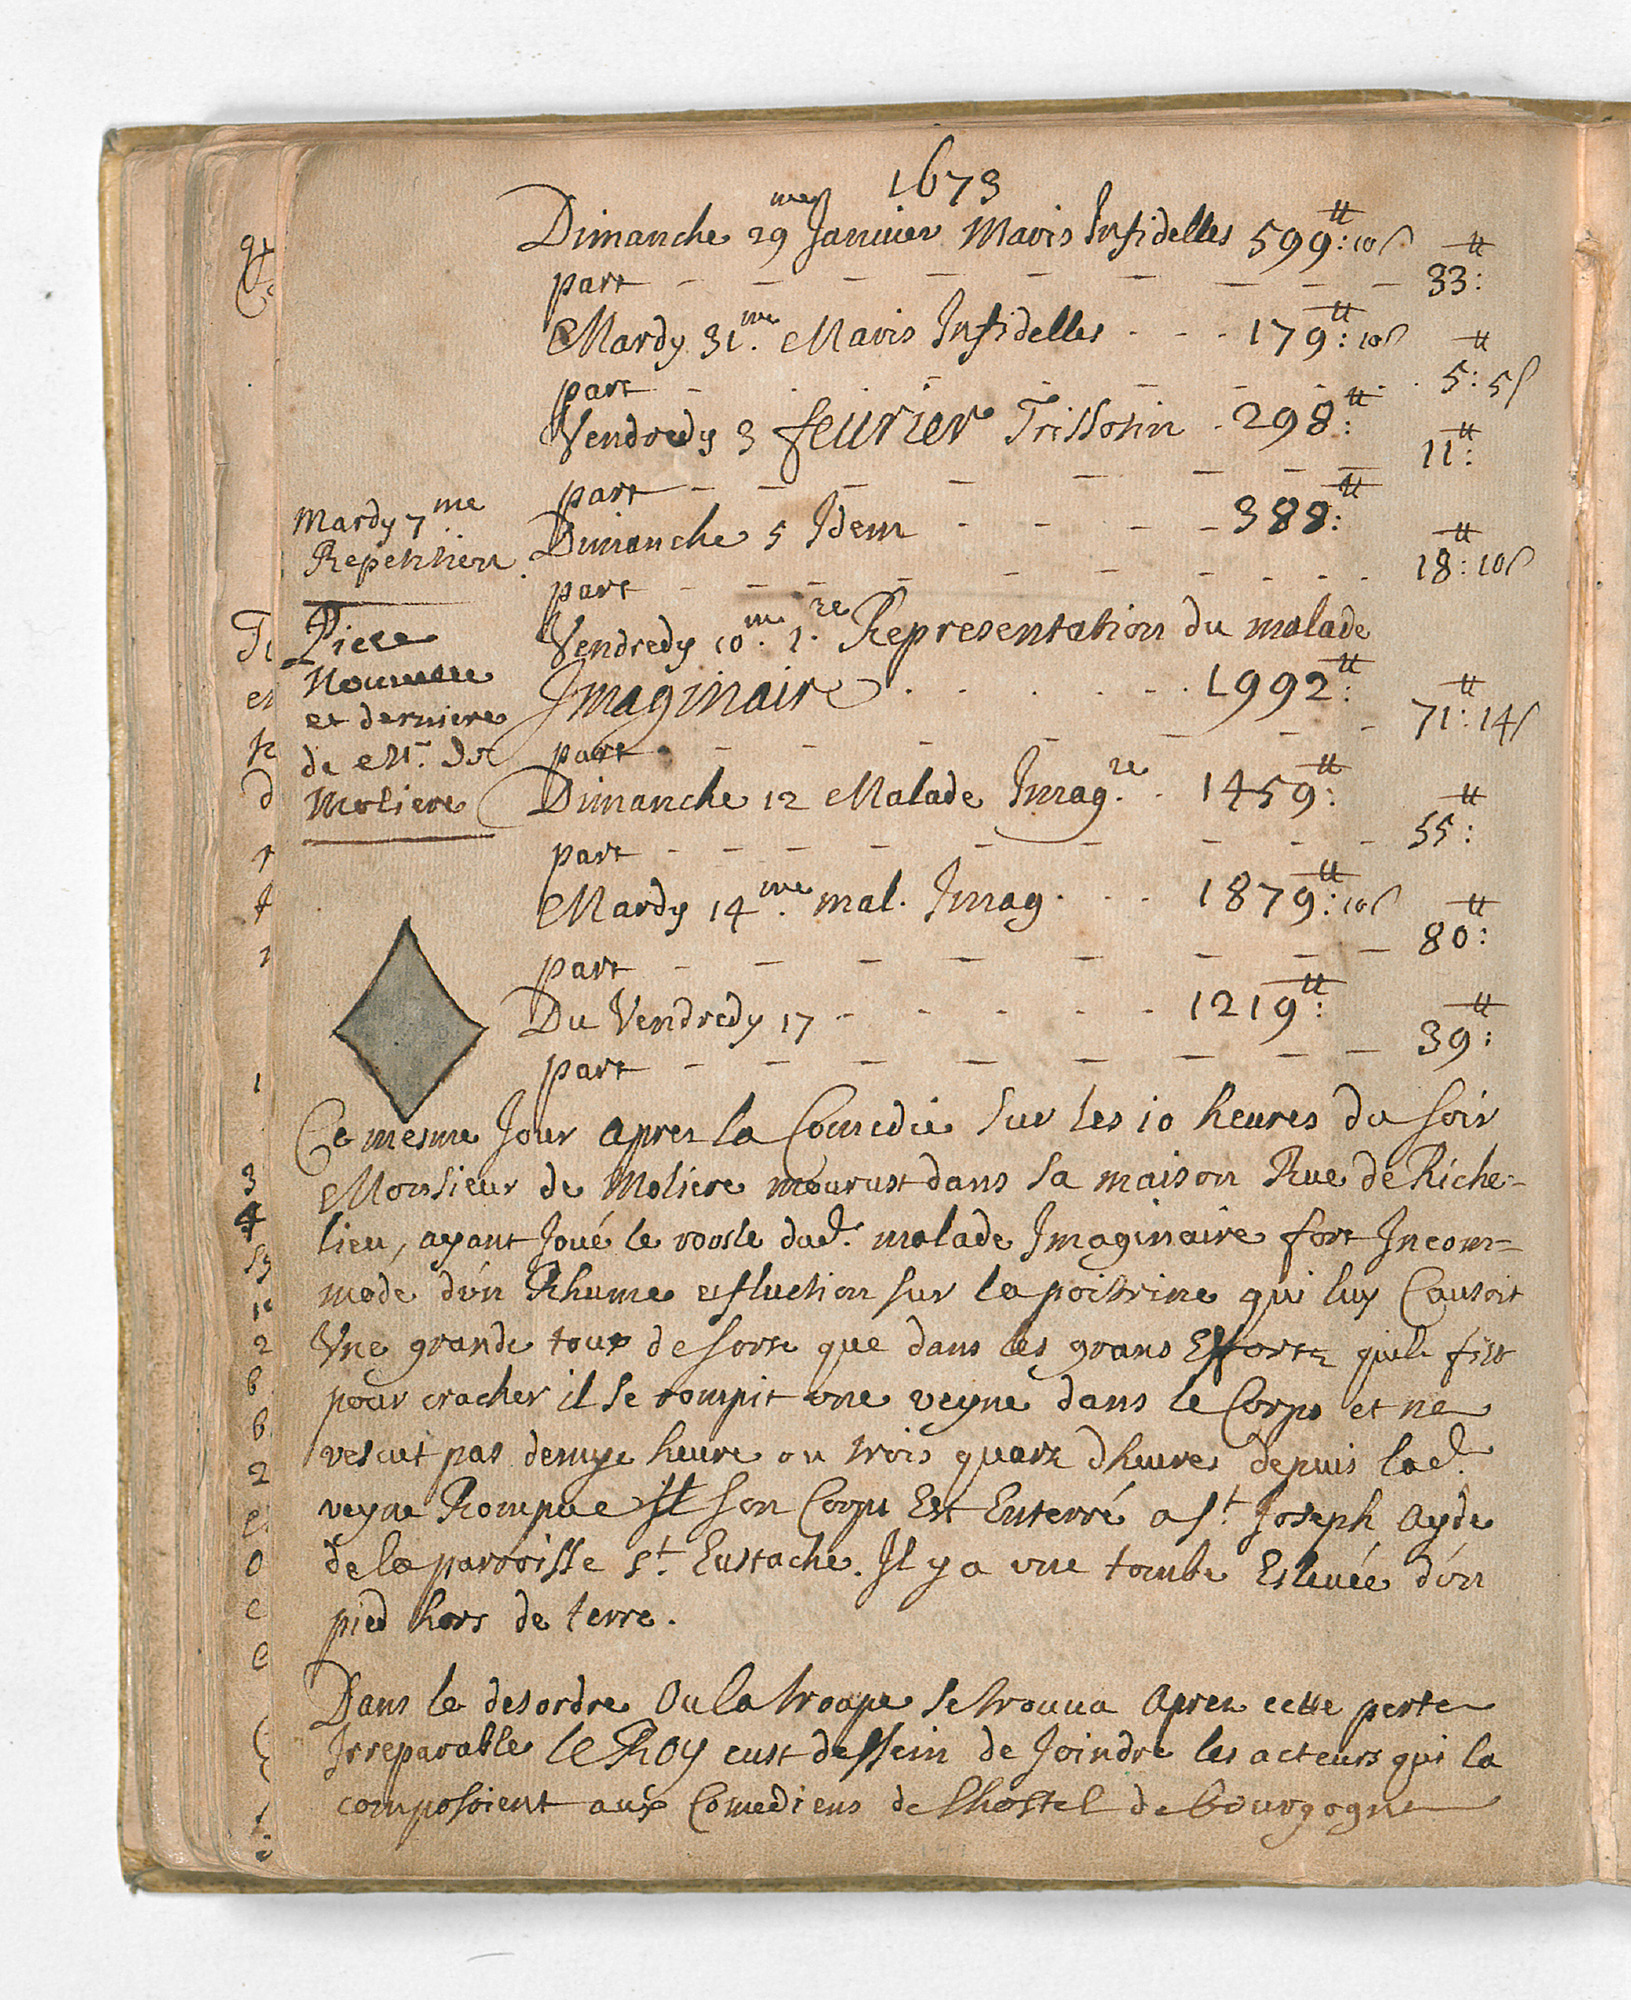 1673
Dimanche 29me Januier Maris Infidelles 599tt: 10s
part 33tt:
Mardy 31.me Maris Infidelles 179tt: 10s
part 5tt: 5s
Vendredy 3 feurier Trissotin 298tt:
part 11tt:
Mardy 7me
Repetition.
Dimanche 5 Idem 388tt:
part 18tt: 10s
Vendredy 10.me 1.re Representation du malade
Imaginaire 1992tt:
part 71tt: 14s
Piece
Nouuelle
et derniere
de Mr. De
Moliere
Dimanche 12 Malade Imag.re 1459tt:
part 55tt:
Mardy 14.me mal. Imag. 1879tt: 10s
part 80tt:
Du Vendredy 17 1219tt:
part 39tt:
Ce mesme Jour apres la Comedie sur les 10 heures du soir
Monsieur de Moliere mourust dans sa maison Rue de Riche=
lieu, ayant Joué le roosle dud. malade Imaginaire fort Incom=
modé d'un Rhume et fluction sur la poitrine qui luy Causoit
Vne grande toux de sorte que dans les grans Effortz quil fist
pour cracher il se rompit une veyne dans le Corps et ne
vescut pas demye heure ou trois quartz dheures depuis lad.
veyne Rompue son Corps Est Enterré a St. Joseph ayde
de la parroisse St. Eustache. Il y a une tombe Esleuée d'un
pied hors de terre.
Dans le desordre Ou la troupe se trouua Apres cette perte
Irreparable le Roy eust dessein de Joindre les acteurs qui la
composoient aux Comediens de lhostel de bourgogne